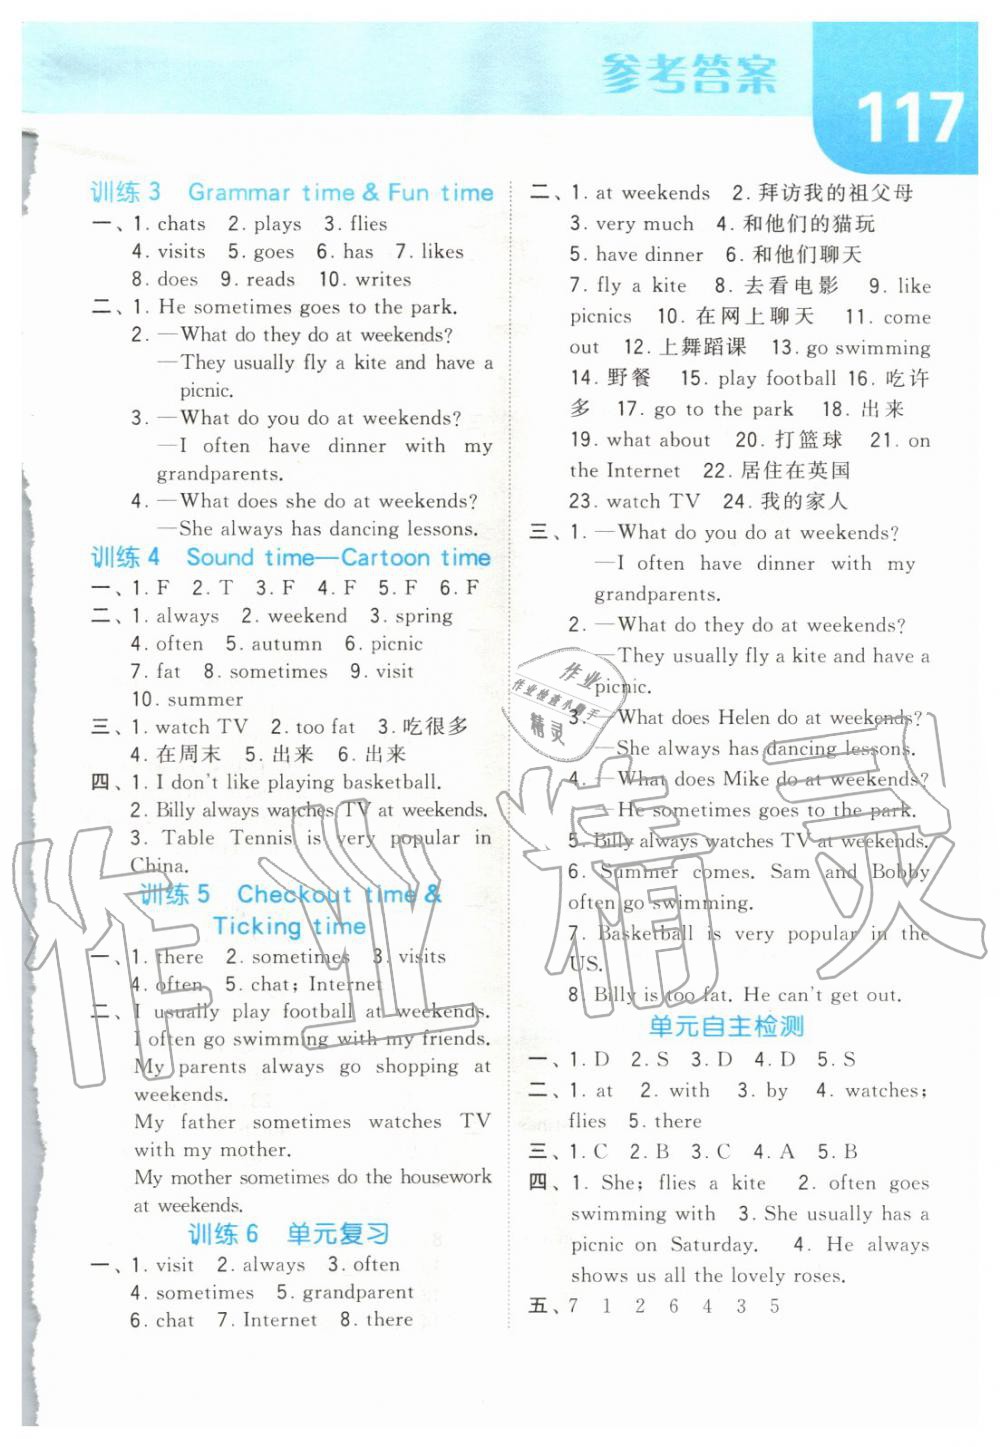 参考答案
117
训练3 Grammar time & Fun time
一、1. chats 2. plays 3. flies
4. visits 5. goes 6. has 7. likes
8. does 9. reads 10. writes
二、1. He sometimes goes to the park.
2. —What do they do at weekends?
—They usually fly a kite and have a
picnic.
3. —What do you do at weekends?
—I often have dinner with my
grandparents.
4. —What does she do at weekends?
—She always has dancing lessons.
训练4 Sound time—Cartoon time
一、1. F 2. T 3. F 4. F 5. F 6. F
二、1. always 2. weekend 3. spring
4. often 5. autumn 6. picnic
7. fat 8. sometimes 9. visit
10. summer
三、1. watch TV 2. too fat 3. 吃很多
4. 在周末 5. 出来 6. 出来
四、1. I don't like playing basketball.
2. Billy always watches TV at weekends.
3. Table Tennis is very popular in
China.
训练5 Checkout time &
Ticking time
一、1. there 2. sometimes 3. visits
4. often 5. chat; Internet
二、I usually play football at weekends.
I often go swimming with my friends.
My parents always go shopping at
weekends.
My father sometimes watches TV
with my mother.
My mother sometimes do the housework
at weekends.
训练6 单元复习
一、1. visit 2. always 3. often
4. sometimes 5. grandparent
6. chat 7. Internet 8. there
二、1. at weekends 2. 拜访我的祖父母
3. very much 4. 和他们的猫玩
5. have dinner 6. 和他们聊天
7. fly a kite 8. 去看电影 9. like
picnics 10. 在网上聊天 11. come
out 12. 上舞蹈课 13. go swimming
14. 野餐 15. play football 16. 吃许
多 17. go to the park 18. 出来
19. what about 20. 打篮球 21. on
the Internet 22. 居住在英国
23. watch TV 24. 我的家人
三、1. —What do you do at weekends?
—I often have dinner with my
grandparents.
2. —What do they do at weekends?
—They usually fly a kite and have a
picnic.
3. —What does Helen do at weekends?
—She always has dancing lessons.
4. —What does Mike do at weekends?
—He sometimes goes to the park.
5. Billy always watches TV at weekends.
6. Summer comes. Sam and Bobby
often go swimming.
7. Basketball is very popular in the
US.
8. Billy is too fat. He can't get out.
单元自主检测
一、1. D 2. S 3. D 4. D 5. S
二、1. at 2. with 3. by 4. watches;
flies 5. there
三、1. C 2. B 3. C 4. A 5. B
四、1. She; flies a kite 2. often goes
swimming with 3. She usually has a
picnic on Saturday. 4. He always
shows us all the lovely roses.
五、7 1 2 6 4 3 5
作业
作业检查小帮手
精灵
作业精灵